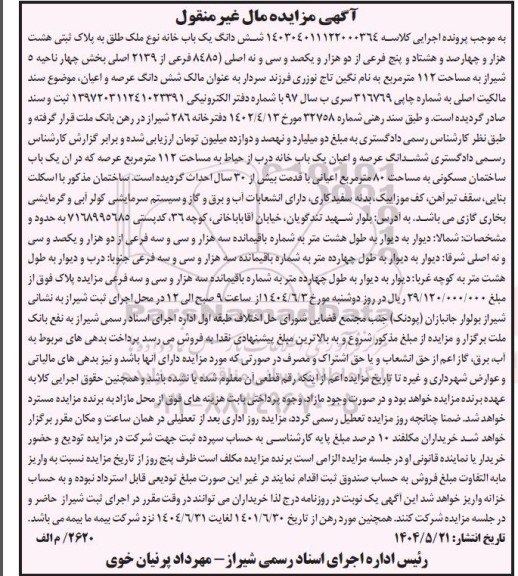 آگهی مزایده مال غیرمنقول
به موجب پرونده اجرایی کلاسه ۱۴۰۳۰۴۰۱۱۱۲۲۰۰۰۳۶۴ شـش دانگ یک باب خانه نوع ملک طلق به پلاک ثبتی هشت
هزار و چهارصد و هشتاد و پنج فرعی از دو هزار و یکصد و سی و نه اصلی (۸۴۸۵ فرعی از ۲۱۳۹ اصلی بخش چهار ناحیه ۵
شیراز به مساحت ۱۱۲ مترمربع به نام نگین تاج نوزری فرزند سردار به عنوان مالک شش دانگ عرصه و اعیان، موضوع سند
مالکیت اصلی به شماره چاپی ۳۱۶۷۶۹ سری ب سال ۹۷ با شماره دفتر الکترونیکی ۱۳۹۷۲۰۳۱۱۲۴۱۰۲۳۳۹۱ ثبت و سند
صادر گردیده است. و طبق سند رهنی شماره ۳۲۷۵۸ مورخ ۱۴۰۲/۴/۱۳ دفترخانه ۲۸۶ شیراز در رهن بانک ملت قرار گرفته و
طبق نظر کارشناس رسمی دادگستری به مبلغ دو میلیارد و نهصد و دوازده میلیون تومان ارزیابی شده و برابر گزارش کارشناس
رسـمی دادگستری ششـدانگ عرصه و اعیان یک باب خانه درب از حیاط به مساحت ۱۱۲ مترمربع عرصه که در ان یک باب
ساختمان مسکونی به مساحت ۸۰ مترمربع اعیانی با قدمت بیش از ۳۰ سال احداث گردیده است. ساختمان مذکور با اسکلت
بنایی، سقف تیرآهن، کف موزاییک، بدنه سفیدکاری، دارای انشعابات آب و برق و گاز و سیستم سرمایشی کولر آبی و گرمایشی
بخاری گازی می باشـد. به آدرس: بلوار شـهید تندگویان، خیابان آقاباباخانی، کوچه ۳۶، کدپستی ۷۱۶۸۹۹۵۶۸۵ به حدود و
مشخصات: شمالا: دیوار به دیوار به طول هشت متر به شماره باقیمانده سه هزار و سی و سه فرعی از دو هزار و یکصد و سی
و نه اصلی شرقا: دیوار به دیوار به طول چهارده متر به شماره باقیمانده سه هزار و سی و سه فرعی جنوبا: درب و دیوار به طول
هشت متر به کوچه غربا: دیوار به دیوار به طول چهارده متر به شماره باقیمانده سه هزار و سی و سه فرعی مزایده پلاک فوق از
مبلغ ۲۹/۱۲۰/۰۰۰/۰۰۰ ریال در روز دوشنبه مورخ ۱۴۰۴/۶/۳ از ساعت ۹ صبح الی ۱۲ در محل اجرای ثبت شیراز به نشانی
شیراز بولوار جانبازان (پودنک) جنب مجتمع قضایی شورای حل اختلاف طبقه اول اداره اجرای اسناد رسمی شیراز به نفع بانک
ملت برگزار و مزایده از مبلغ مذکور شروع و به بالاترین مبلغ پیشنهادی نقدا به فروش می رسد پرداخت بدهی های مربوط به
آب، برق، گاز اعم از حق انشعاب و یا حق اشتراک و مصرف در صورتی که مورد مزایده دارای آنها باشد و نیز بدهی های مالیاتی
و عوارض شهرداری و غیره تا تاریخ مزایده اعم از اینکه رقم قطعی ان معلوم شده یا نشده باشد و همچنین حقوق اجرایی کلا به
عهده برنده مزایده خواهد بود و در صورت وجود مازاد، وجوه پرداختی بابت هزینه های فوق از محل مازاد به برنده مزایده مسترد
خواهد شد. ضمنا چنانچه روز مزایده تعطیل رسمی گردد، مزایده روز اداری بعد از تعطیلی در همان ساعت و مکان مقرر برگزار
خواهد شـد خریداران مکلفند ۱۰ درصد مبلغ پایه کارشناسـی به حساب سپرده ثبت جهت شرکت در مزایده تودیع و حضور
خریدار یا نماینده قانونی او در جلسه مزایده الزامی است برنده مزایده مکلف است ظرف پنج روز از تاریخ مزایده نسبت به واریز
مابه التفاوت مبلغ فروش به حساب صندوق ثبت اقدام نمایند در غیر این صورت مبلغ تودیعی قابل استرداد نبوده و به حساب
خزانه واریز خواهد شد این آگهی یک نوبت در روزنامه درج لذا خریداران می توانند در وقت مقرر در اجرای ثبت شیراز حاضر و
در جلسه مزایده شرکت کنند. همچنین مورد رهن از تاریخ ۱۴۰۱/۶/۳۰ لغایت ۱۴۰۴/۶/۳۱ نزد شرکت بیمه ما بیمه می باشد.
تاریخ انتشار: ۱۴۰۴/۵/۲۱ ۲۶۲۰/ م الف
رئیس اداره اجرای اسناد رسمی شیراز - مهرداد پرنیان خوی